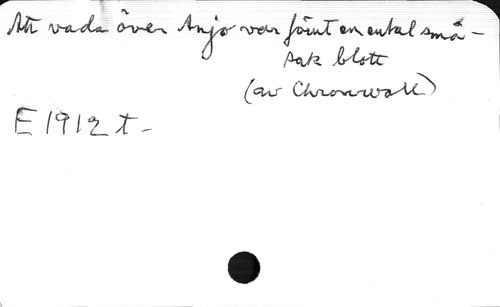 Att vada över Anjo var fäint en enkel små-
sak blott
(av Chronwall)
E 1912 t -